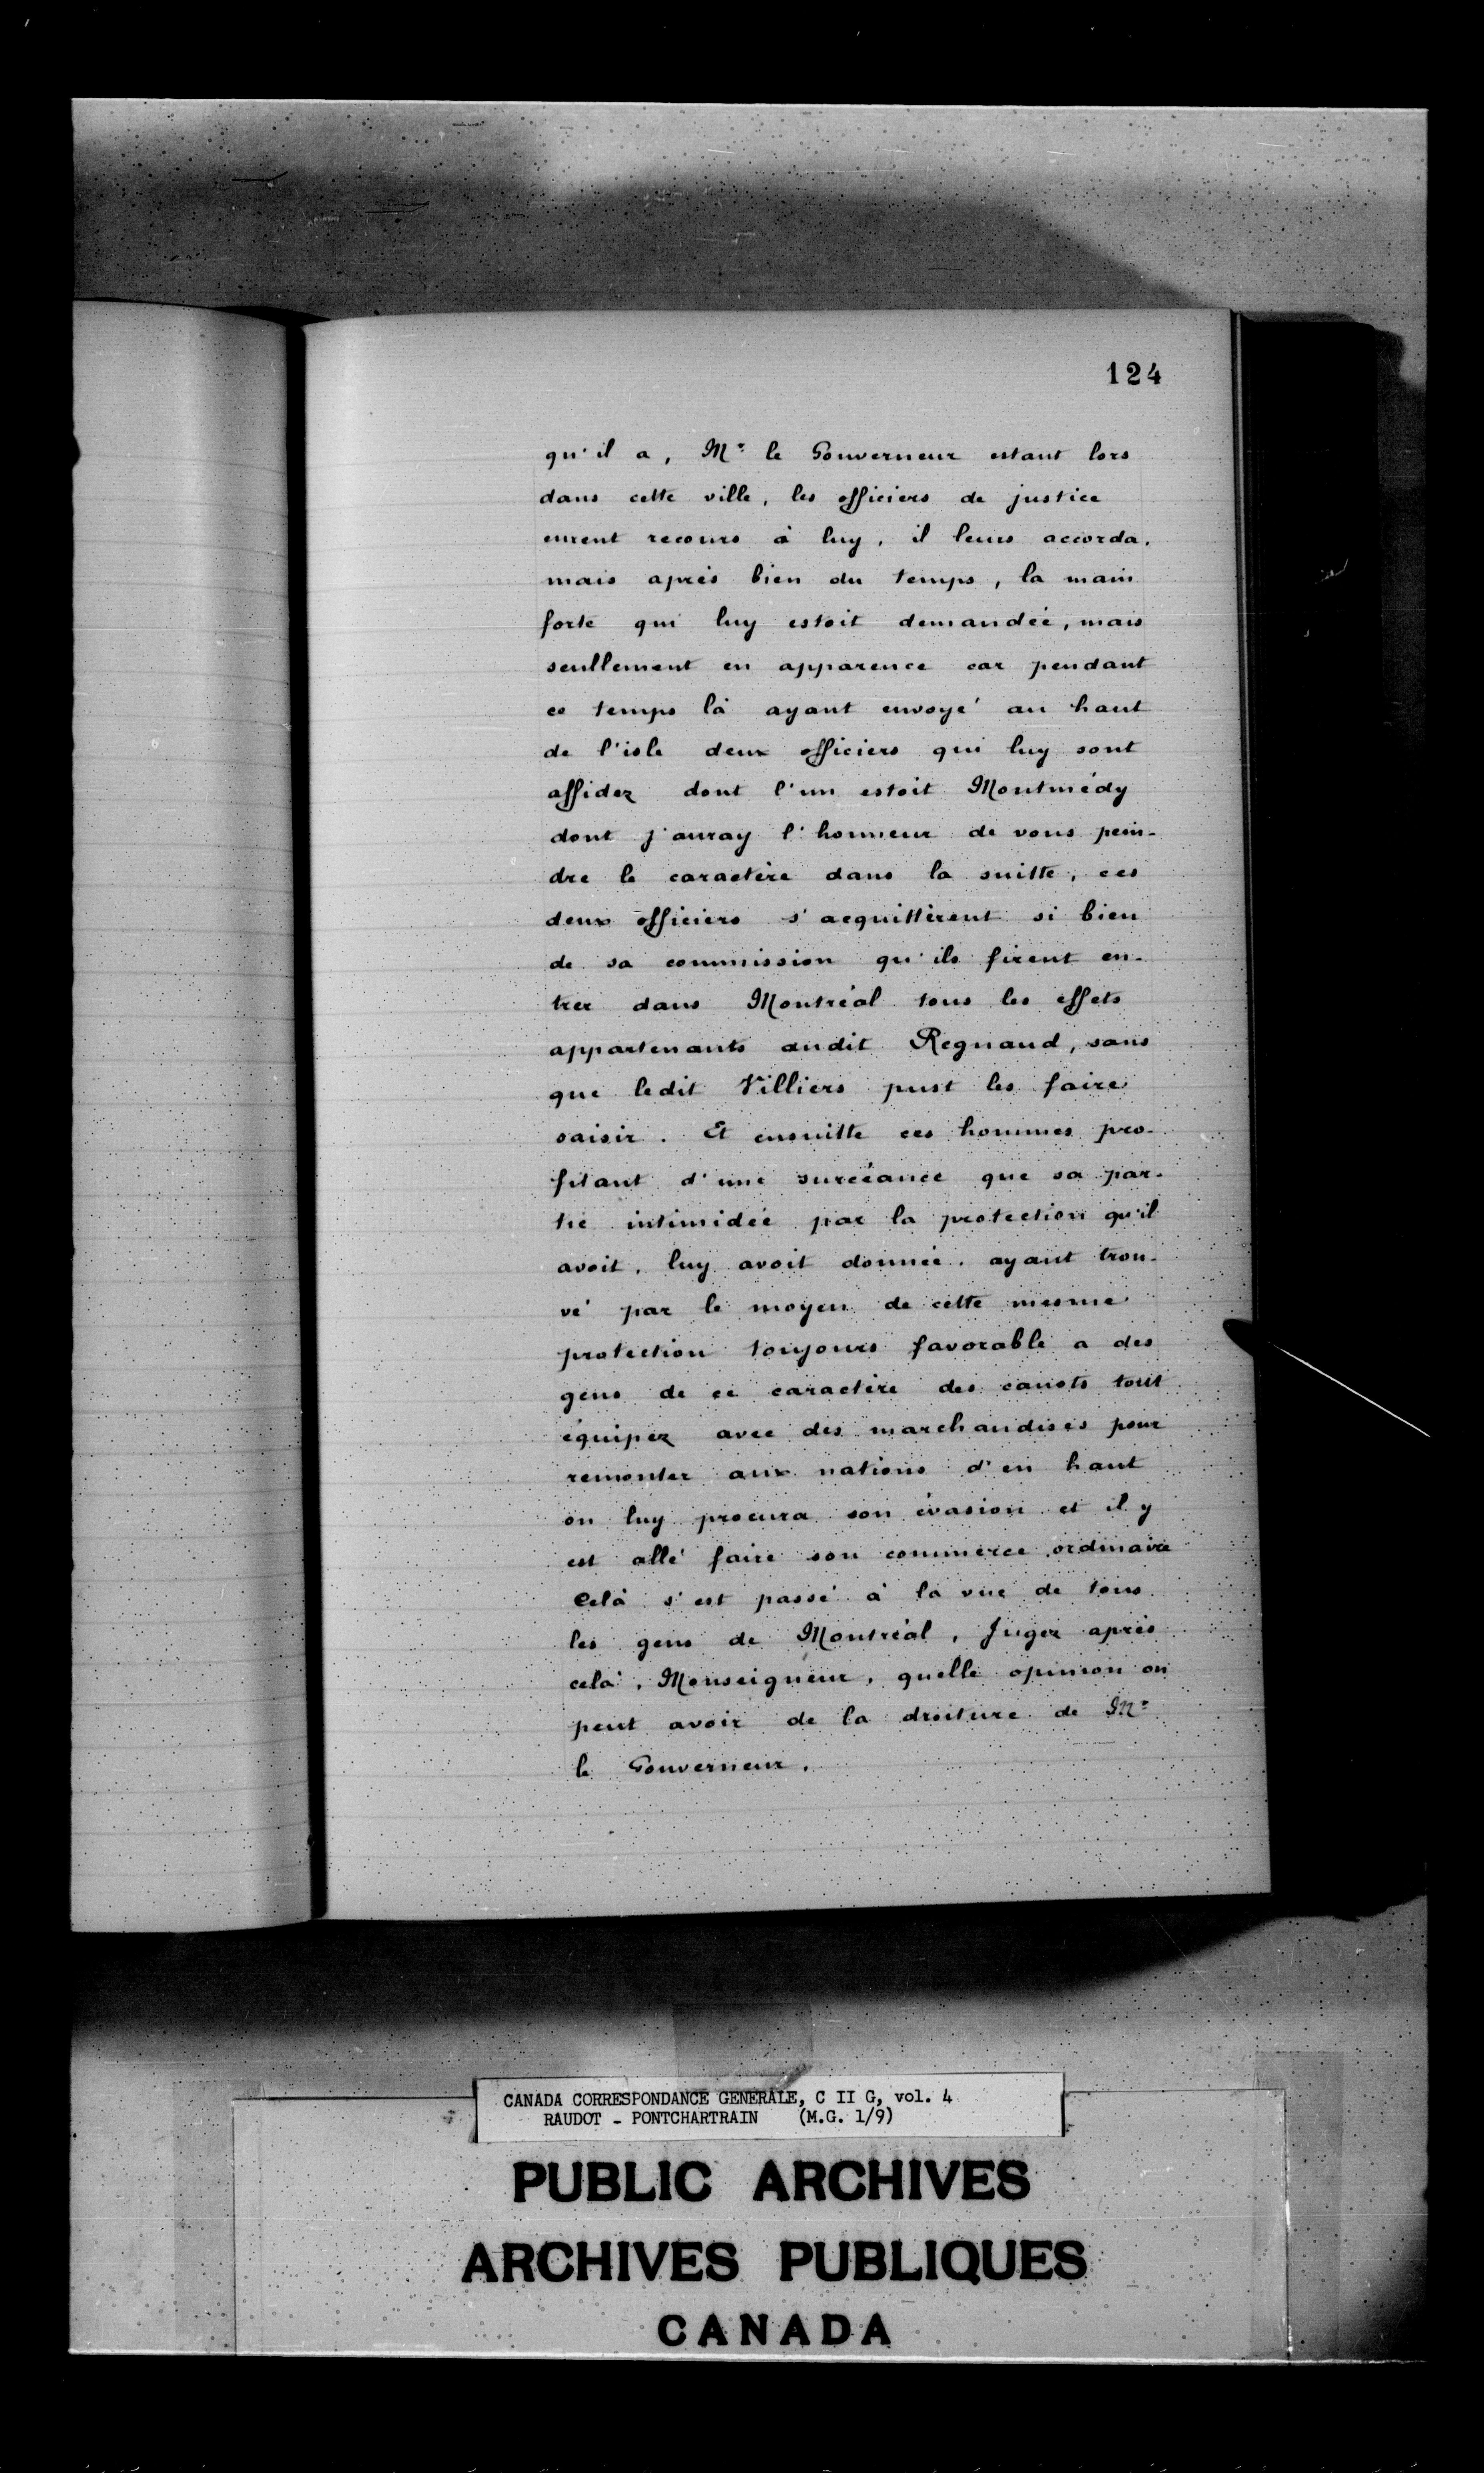 124
qu'il a, Mr le Gouverneur estant lors
dans cette ville, les officiers de justice
eurent recours à luy, il leurs accorda,
mais après bien du temps, la main
forte qui luy estoit demandée, mais
seullement en apparence car pendant
ce temps là ayant envoyé au haut
de l'isle deux officiers qui luy sont
affidez dont l'un estoit Montmédy
dont j'auray l'honneur de vous pein-
dre le caractère dans la suitte, ces
deux officiers s'acquittèrent si bien
de sa commission qu'ils firent en-
trer dans Montréal tous les effets
appartenants audit Regnaud, sans
que ledit Villiers pust les faire
saisir. Et ensuitte ces hommes pro-
fitant d'une surcéance que sa par-
tie intimidée par la protection qu'il
avoit, luy avoit donnée, ayant trou-
vé par le moyen de cette mesme
protection toujours favorable a des
gens de ce caractère des canots tout
équipez avec des marchandises pour
remonter aux nations d'en haut
on luy procura son évasion et il y
est allé faire son commerce ordinaire
Celà s'est passé à la vue de tous
les gens de Montréal, Jugez après
celà, Monseigneur, quelle opinion on
peut avoir de la droiture de Mr
le Gouverneur.
CANADA CORRESPONDANCE GENERALE, C II G, vol. 4
RAUDOT - PONTCHARTRAIN (M.G. 1/9)
PUBLIC ARCHIVES
ARCHIVES PUBLIQUES
CANADA